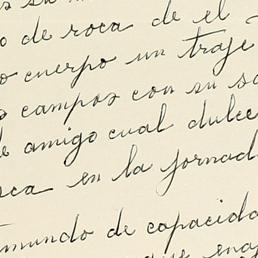 o de roca de el
o cuerpo un traje
campos con su s
e amigo cual dulce
sca en la jornad
mundo de capacida